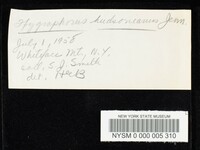 Hygrophorus hudsonianus Jenn.
July 1, 1958
Whiteface Mt., N.Y.
coll. S. J. Smith
det. HEB
NEW YORK STATE MUSEUM
NYSM 0 000 005 310